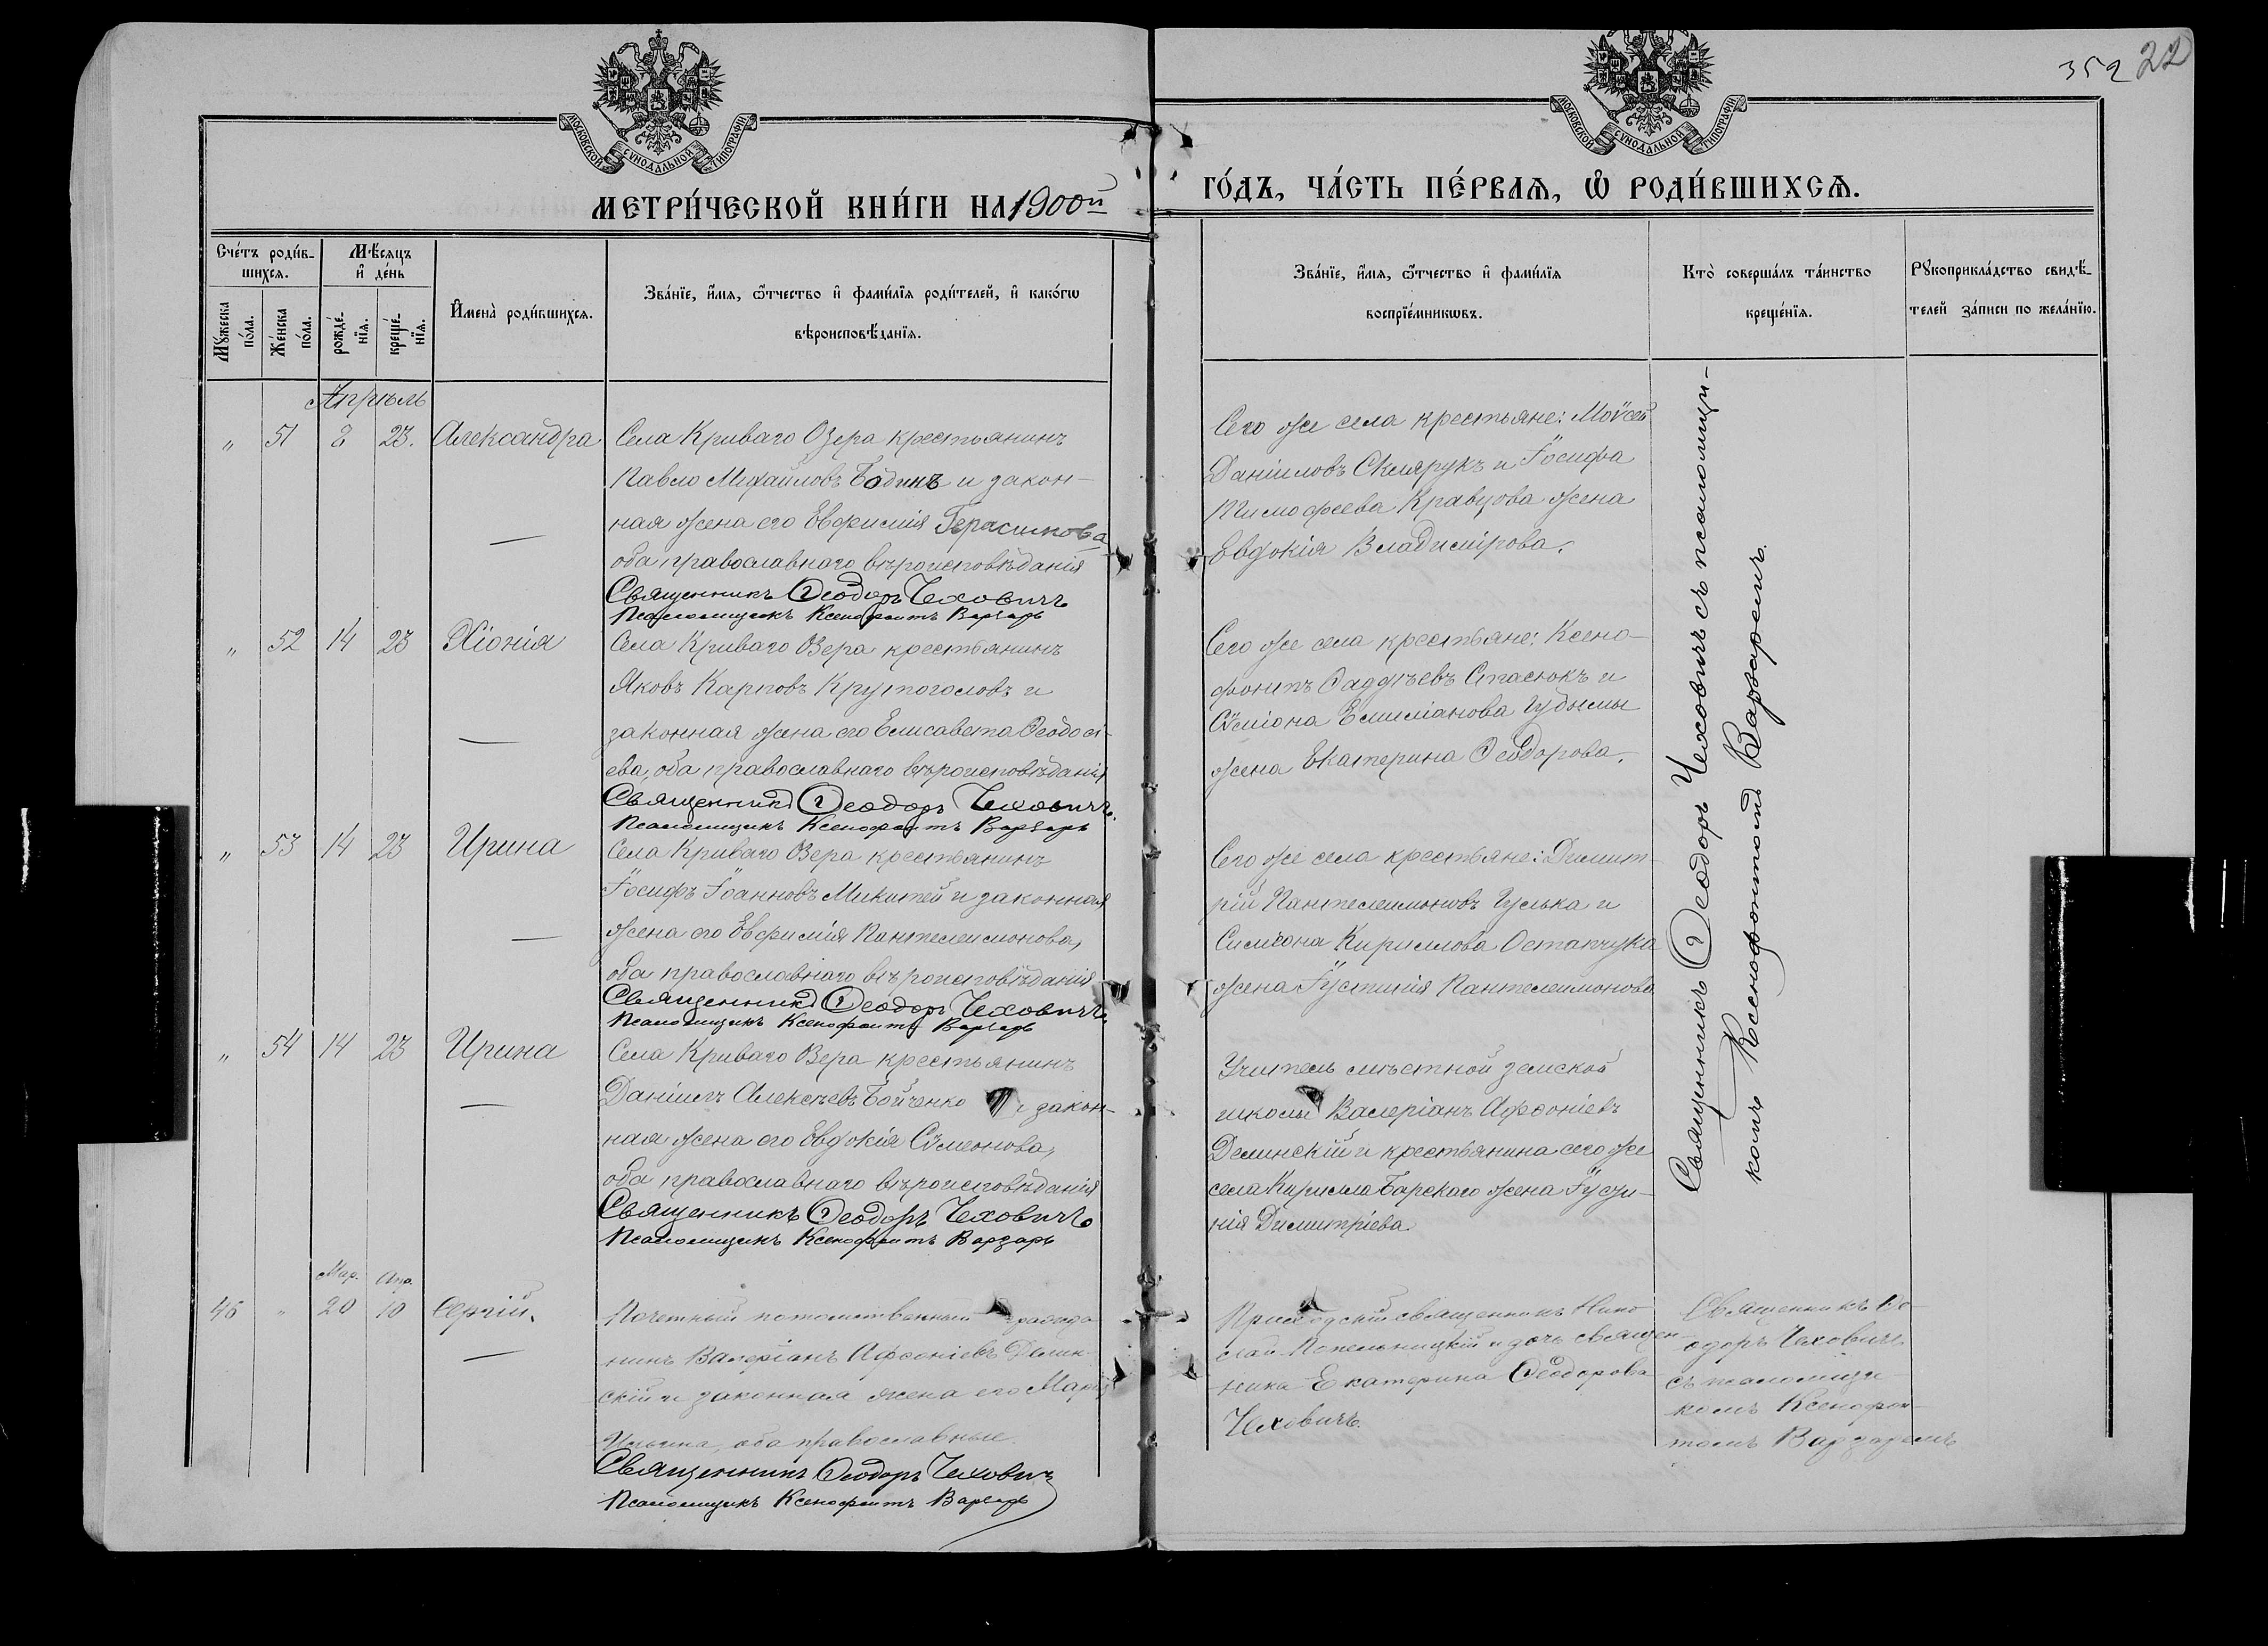 МОСКОВСКОЙ СѴНОДАЛЬНОЙ ТИПОГРАФІИ
МОСКОВСКОЙ СѴНОДАЛЬНОЙ ТИПОГРАФІИ
359 22
МЕТРИ́ЧЕСКОЙ КНИ́ГИ НА 1900й
ГО́ДЪ, ЧА́СТЬ ПЕ́РВАѦ, Ѡ РОДИ́ВШИХСѦ.
Сче́тъ роди́в-
шихсѧ.
Мꙋ́жеска по́ла.
Же́нска по́ла.
Мѣ́сѧцъ
и҆ де́нь
рожде́-
нїѧ.
креще́-
нїѧ.
И҆мена̀ роди́вшихсѧ.
Зва́нїе, и҆́мѧ, ѻ҆́тчество и҆ фами́лїѧ роди́телей, и҆ како́гѡ
вѣроисповѣ́данїѧ.
Зва́нїе, и҆́мѧ, ѻ҆́тчество и҆ фами́лїѧ
воспрїе́мникѡвъ.
Кто̀ соверша́лъ та́инство
креще́нїѧ.
Рꙋкоприкла́дство свидѣ́-
телей за́писи по жела́нїю.
Апрѣль
" 51 8 23. Александра
Села Криваго Озера крестьянинъ
Павло Михайловъ Бодинъ и закон-
ная жена его Евфимія Герасимова
оба православнаго вѣроисповѣданія
Священникъ Ѳеодоръ Чеховичъ
Псаломщикъ Ксенофонтъ Варзарь
Сего же села крестьяне: Моѵсей
Даніиловъ Склярукъ и Іосифа
Тимофеева Кравцова жена
Евдокія Владимірова.
" 52 14 23 Хіонія
Села Криваго Озера крестьянинъ
Яковъ Карповъ Крутоголовъ и
законная жена его Елисавета Ѳеодосі-
ева, оба православнаго вѣроисповѣданія
Священникъ Ѳеодоръ Чеховичъ.
Псаломщикъ Ксенофонтъ Варзарь
Сего же села крестьяне: Ксено-
фонтъ Ѳаддѣевъ Спасюкъ и
Сѵмеона Емиліанова Губымы
жена Екатерина Ѳеодорова.
" 53 14 23 Ирина
Села Криваго Озера крестьянинъ
Іосифъ Іоанновъ Микитей и законная
жена его Евфимія Пантелеимонова,
оба православнаго вѣроисповѣданія
Священникъ Ѳеодоръ Чеховичъ.
Псаломщикъ Ксенофонтъ Варзарь
Сего же села крестьяне: Димит-
рій Пантелеимоновъ Гулька и
Симеона Кириллова Остапчука
жена Іустинія Пантелеимонова
" 54 14 23 Ирина
Села Криваго Озера крестьянинъ
Даніилъ Алексѣевъ Бойченко и закон-
ная жена его Евдокія Сѵмеонова,
оба православнаго вѣроисповѣданія
Священникъ Ѳеодоръ Чеховичъ
Псаломщикъ Ксенофонтъ Варзарь
Учитель мѣстной земской
школы Валеріанъ Афѳоніевъ
Делинскій и крестьянина сего же
села Кирилла Барскаго жена Іусти-
нія Димитріева
Священникъ Ѳеодоръ Чеховичъ съ псаломщи-
комъ Ксенофонтомъ Варзаремъ.
Мар. Апр.
46 " 20 10 Сергій.
Почетный потомственный гражда-
нинъ Валеріанъ Афѳоніевъ Делин-
скій и законная жена его Марія
Ильина, оба православные.
Священникъ Ѳеодоръ Чеховичъ
Псаломщикъ Ксенофонтъ Варзарь
Приходскій священникъ Нико-
лай Попельницкій и дочь священ-
ника Екатерина Ѳеодорова
Чеховичъ.
Священникъ Ѳе-
одоръ Чеховичъ
съ псаломщи-
комъ Ксенофон-
томъ Варзаремъ